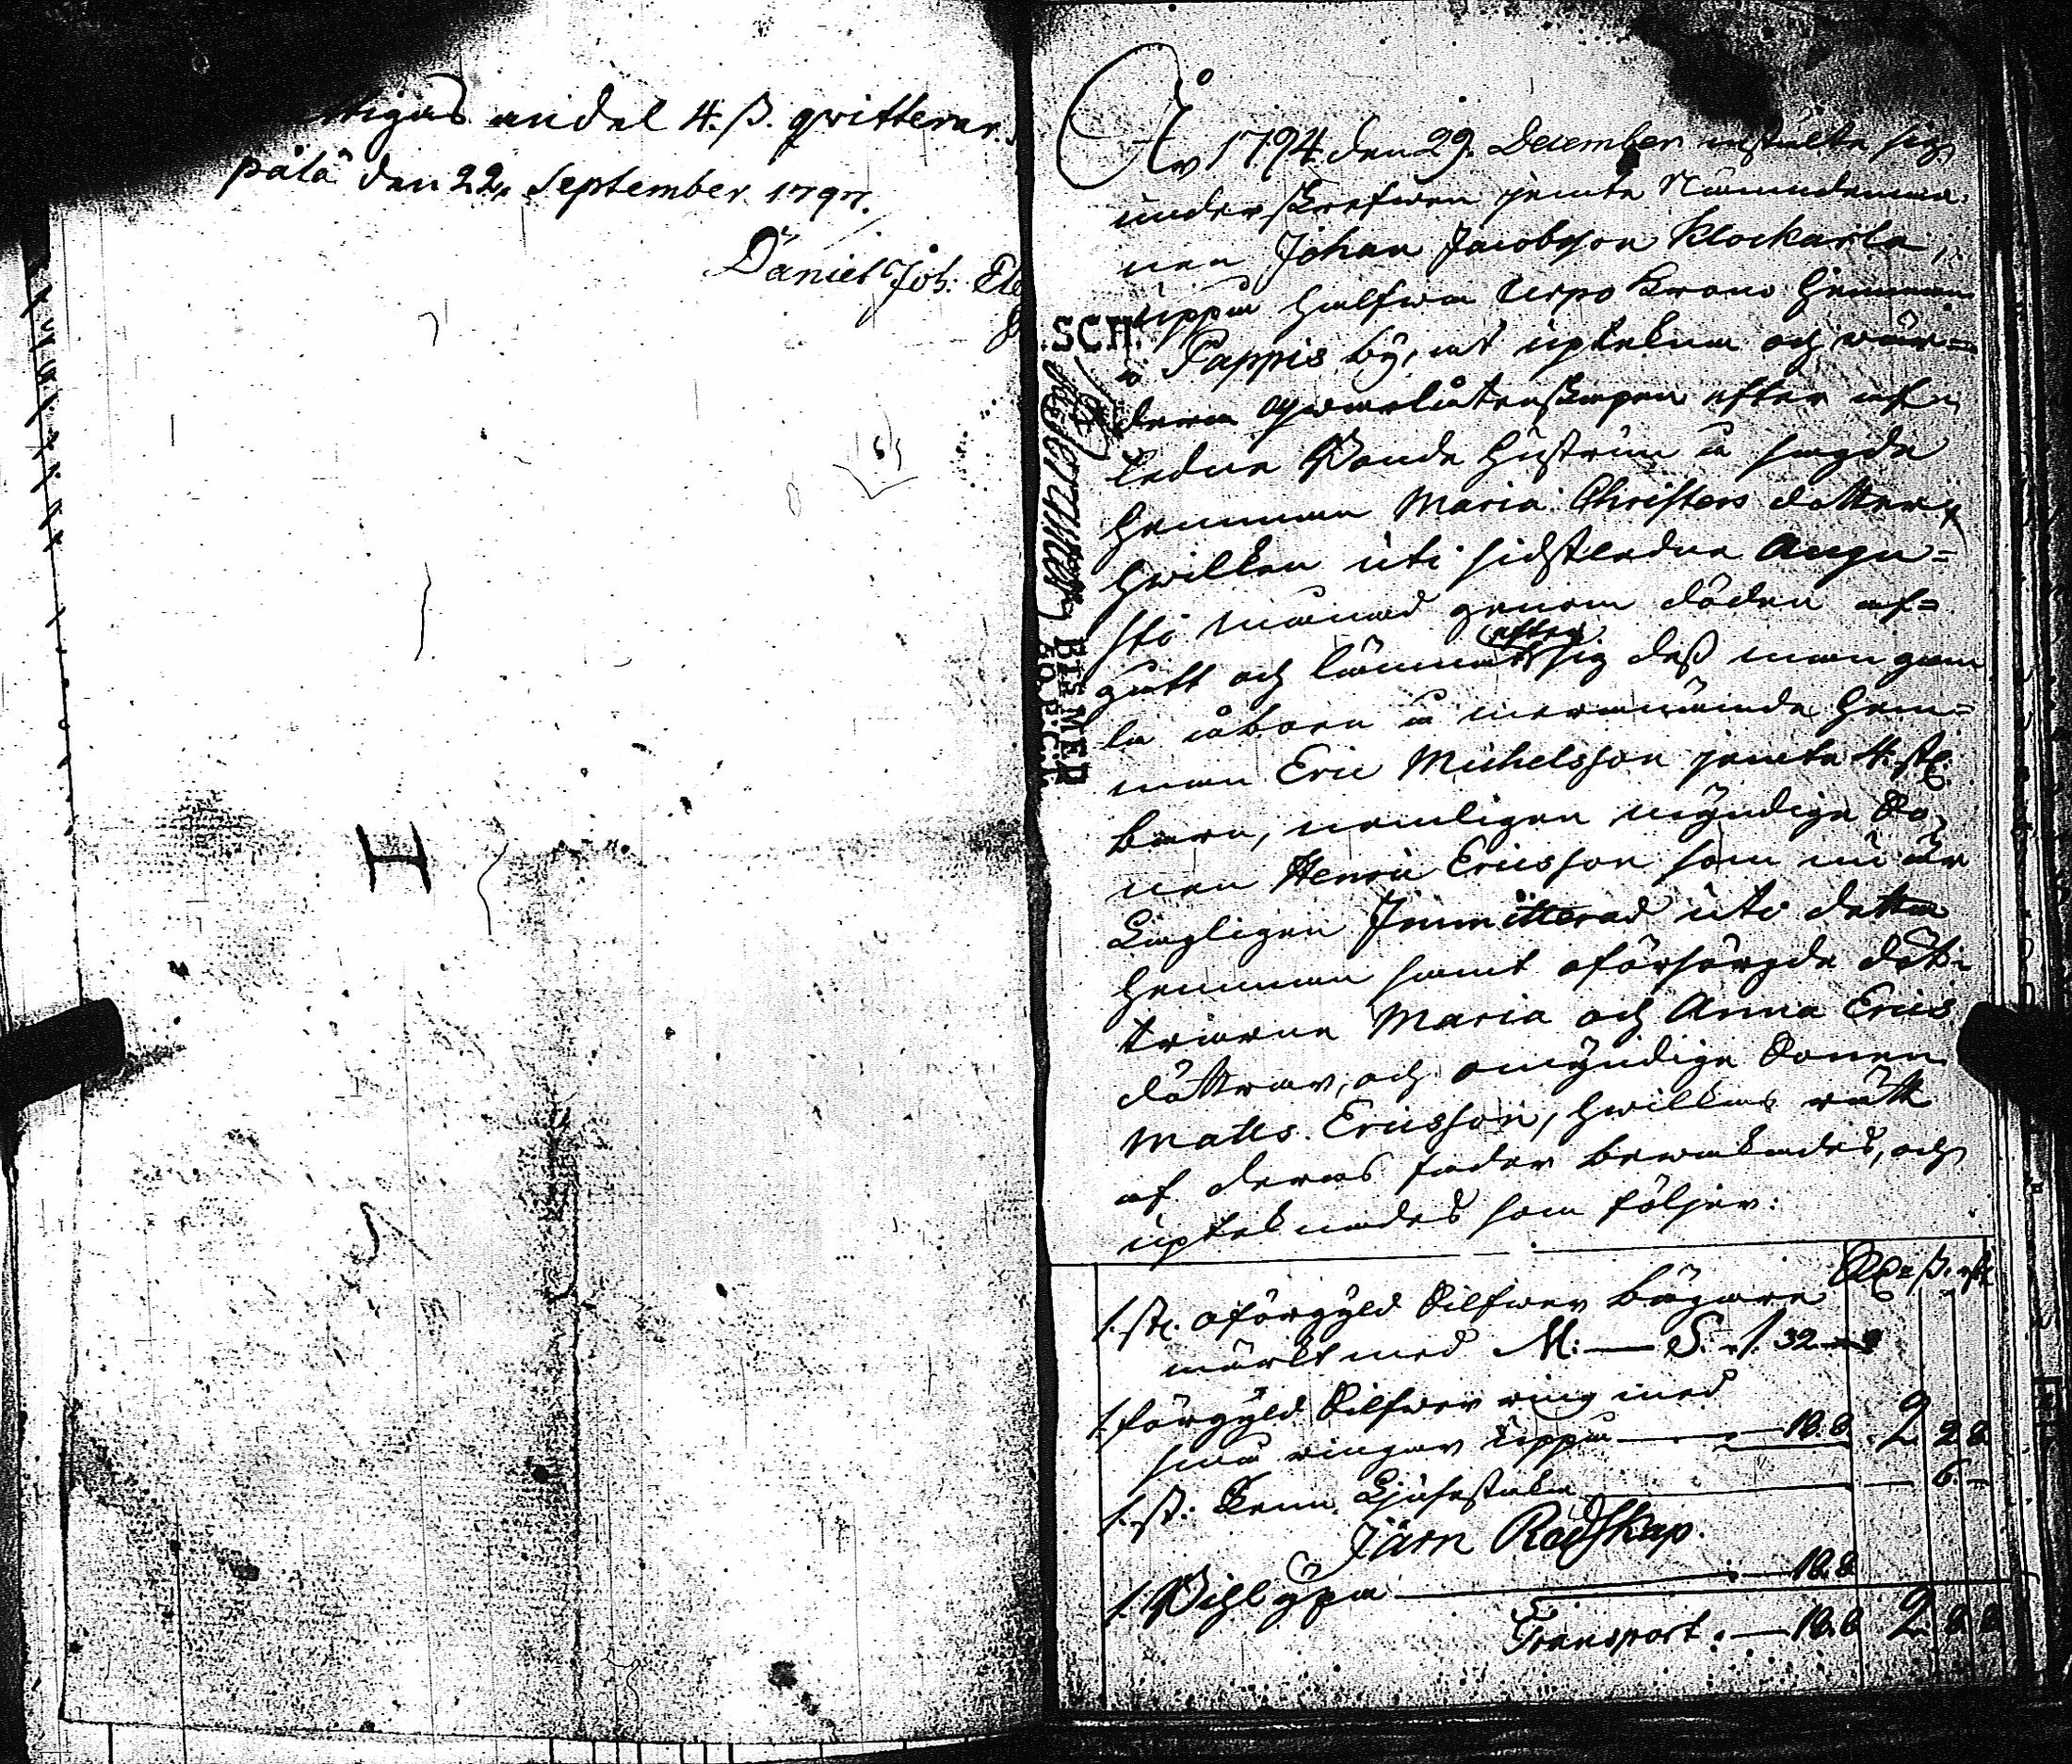 tigas andel 4. ß. qvitterar
påla den 22. September 1797.
Daniel Joh:
År 1794 den 29. December instälte sig
underskrefwen jemte Nämndeman-
nen Johan Jacobsson Klockarla,
uppå halfwa Urpo Krono Hemman
i Pappis by, at uptekna och wär-
dera qwarlåtenskapen efter af-
ledne Bonde Hustrun å sagde
Hemman Maria Christers dotter,
hwilken uti sidstledne Augu-
sti månad genom döden af-
gått och lämnat efter sig deß man gam
la åboen å merannämde Hem-
man Eric Michelsson jemte 4. st.
barn, nemligen myndige So-
nen Henric Ericsson som nu är
Lagligen Immitterad uti detta
Hemman samt oförsörgde döt-
trarna Maria och Anna Erics
döttrar, och omyndige Sonen
Matts Ericsson, hwilkas rätt
af deras fader bewakades, och
uptecknades som följer:
1. st. oförgyld Silfwer bägare
märkt med M: — S. 1. 32.
1. förgyld Silfwer ring med
små ringar uppå — 18. 8 2 2 8
1. st: Tenn Ljusestaka — 6 —
Järn Redskap.
1. — 18. 8
Transport: — 18. 8 2 8 8
SCH.
BISMER